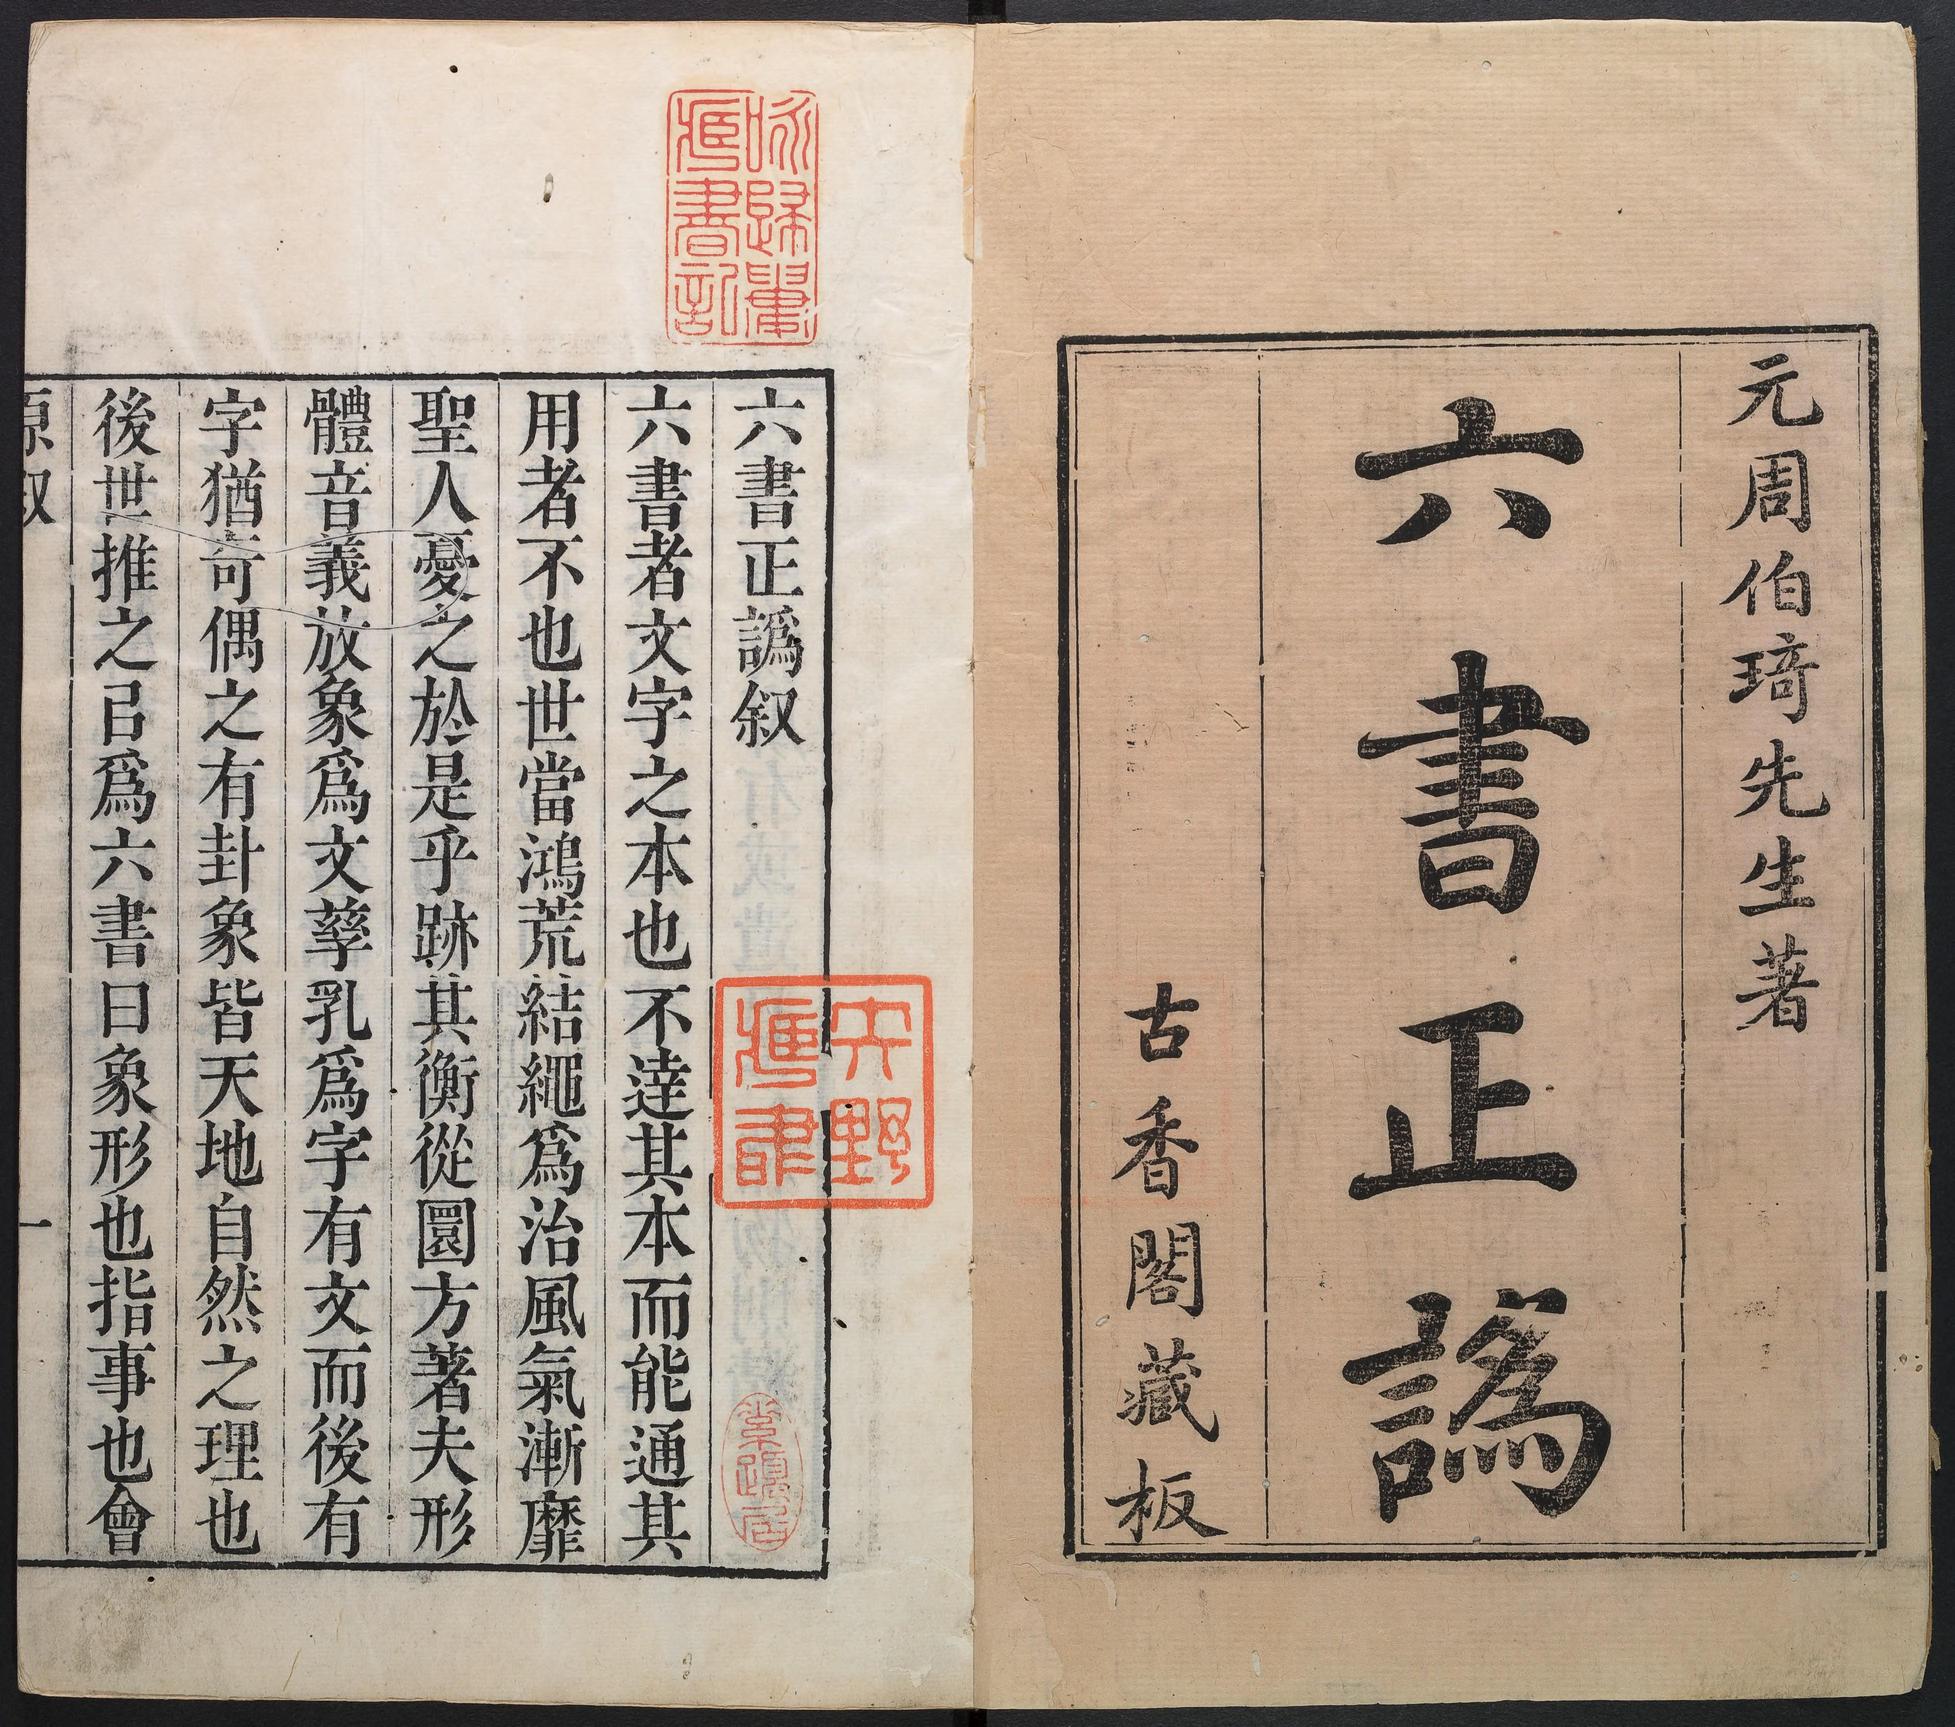 元周伯琦先生著
六書正譌
古香閣藏板
六書正譌叙
六書者文字之本也不達其本而能通其
用者不也世當鴻荒結繩爲治風氣漸靡
聖人憂之於是乎跡其衡從圜方著夫形
體音義放象爲文孳乳爲字有文而後有
字猶奇偶之有卦象皆天地自然之理也
後世推之㠯爲六書曰象形也指事也會
原叙
一
詠歸閣
藏書記
大野
藏書